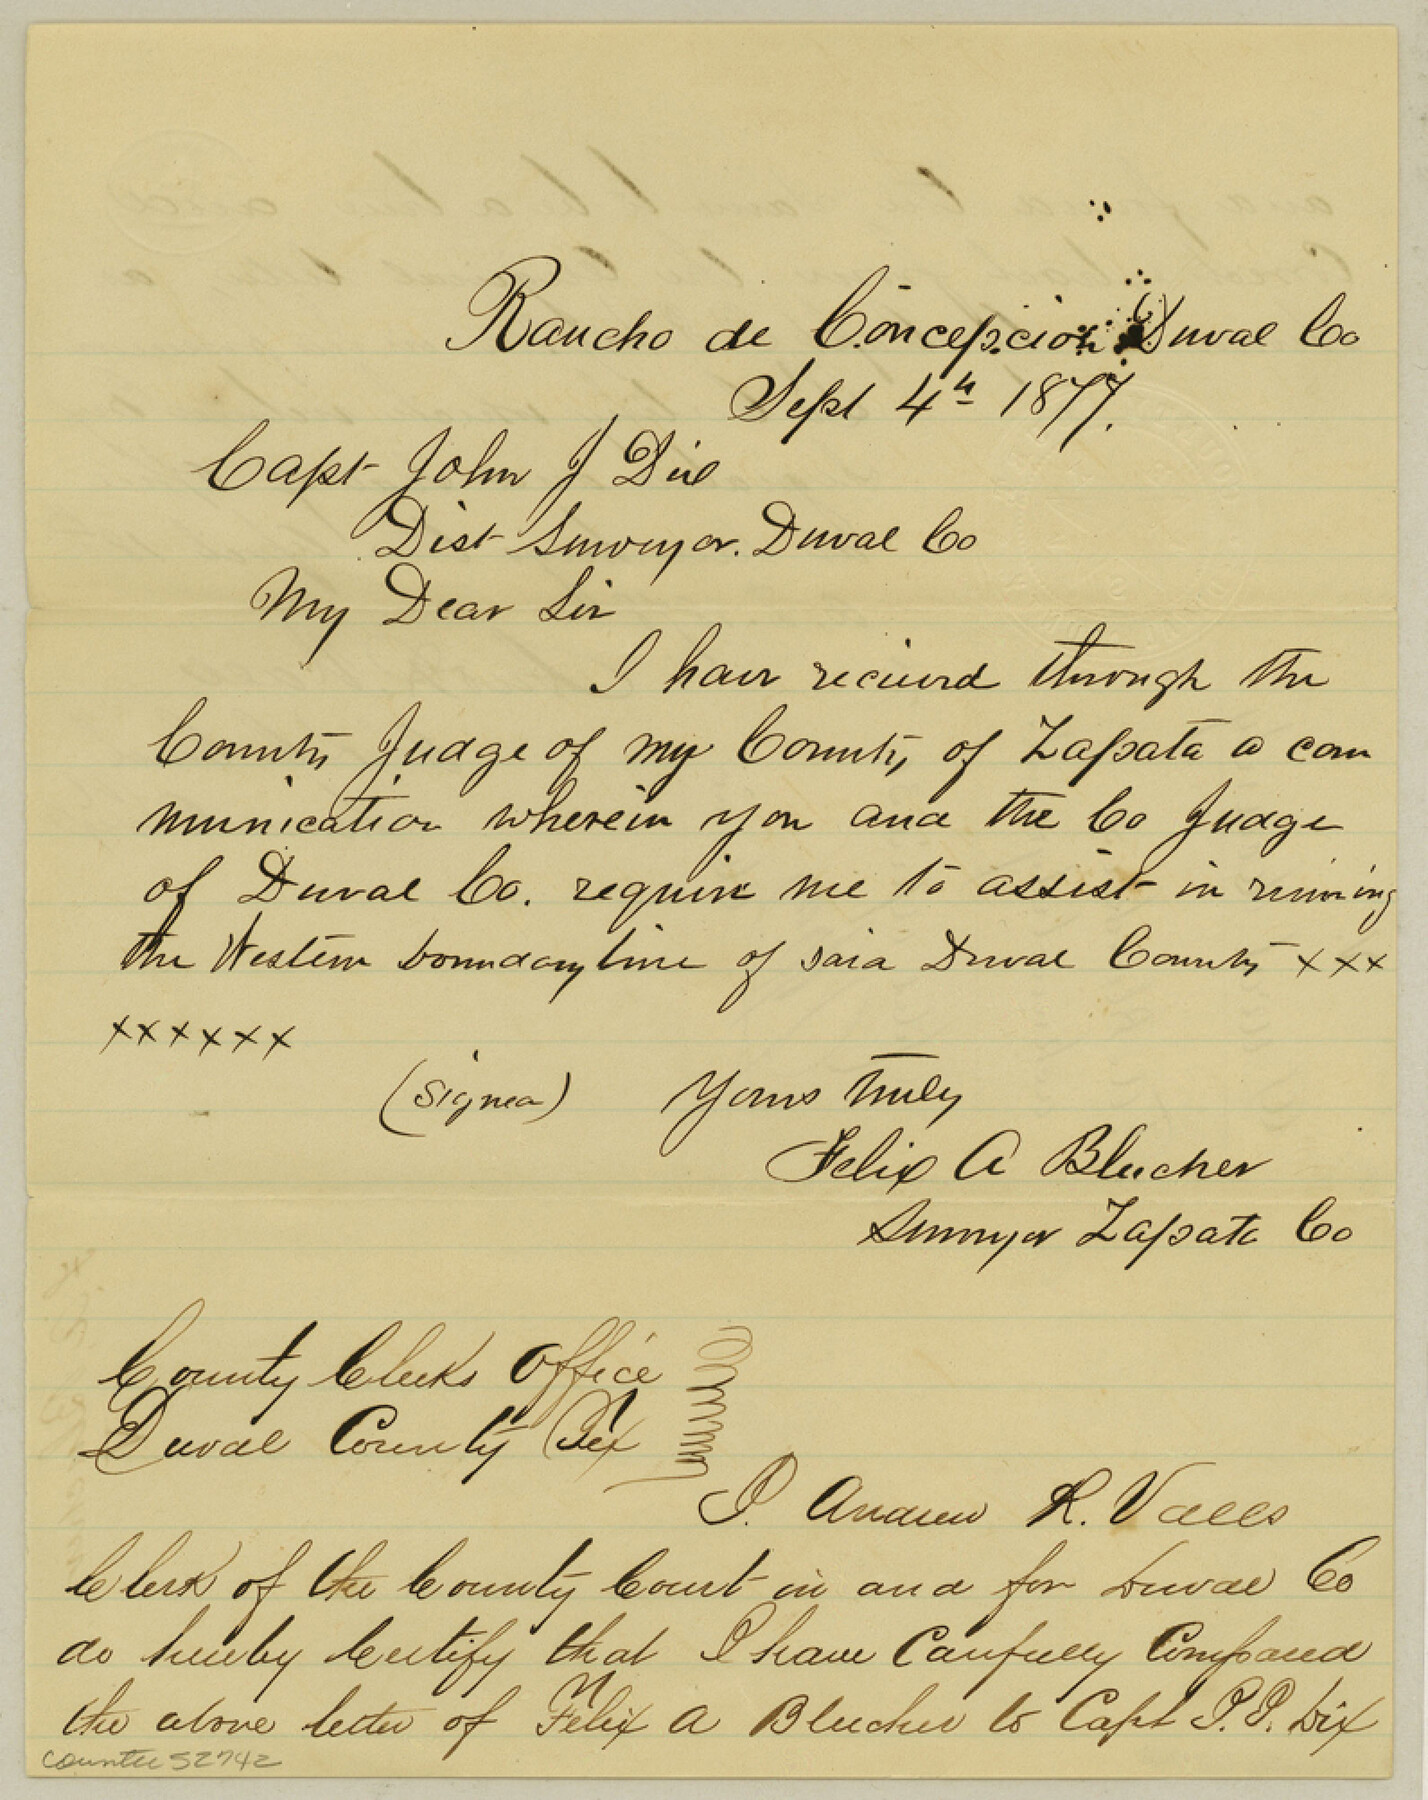 Rancho de Concepcion Duval Co
Sept 4th 1877.
Capt John J Dix
Dist Surveyor. Duval Co
My Dear Sir
I have recieved through the
County Judge of my County of Zapata a com
munication wherein you and the Co Judge
of Duval Co. require me to assist in running
the Western boundary line of said Duval County x x x
x x x x x x
(Signed) Yours truly
Felix A Blucher
Surveyor Zapata Co
County Clerks Office
Duval County Tex
I. Andrew R. Valls
Clerk of the County Court in and for Duval Co
do hereby Certify that I have Carefully Compared
the above letter of Felix A Blucher to Capt J. J. Dix
counter 52742